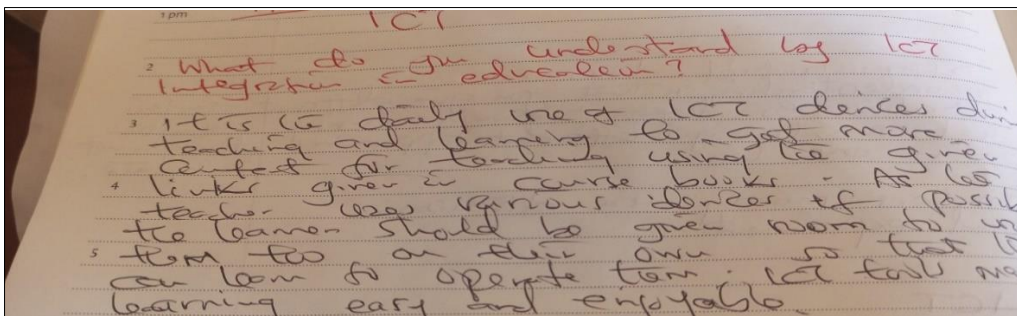 1 pm
ICT
2 What do you understand by ICT
Integration in education?
3 It is the daily use of ICT devices during
teaching and learning to get more
content for teaching using the given
4 links given in course books. As the
teacher uses various devices if possible
the learner should be given room to use
5 them too on their own so that
can learn to operate them. ICT tools
learning easy and enjoyable.